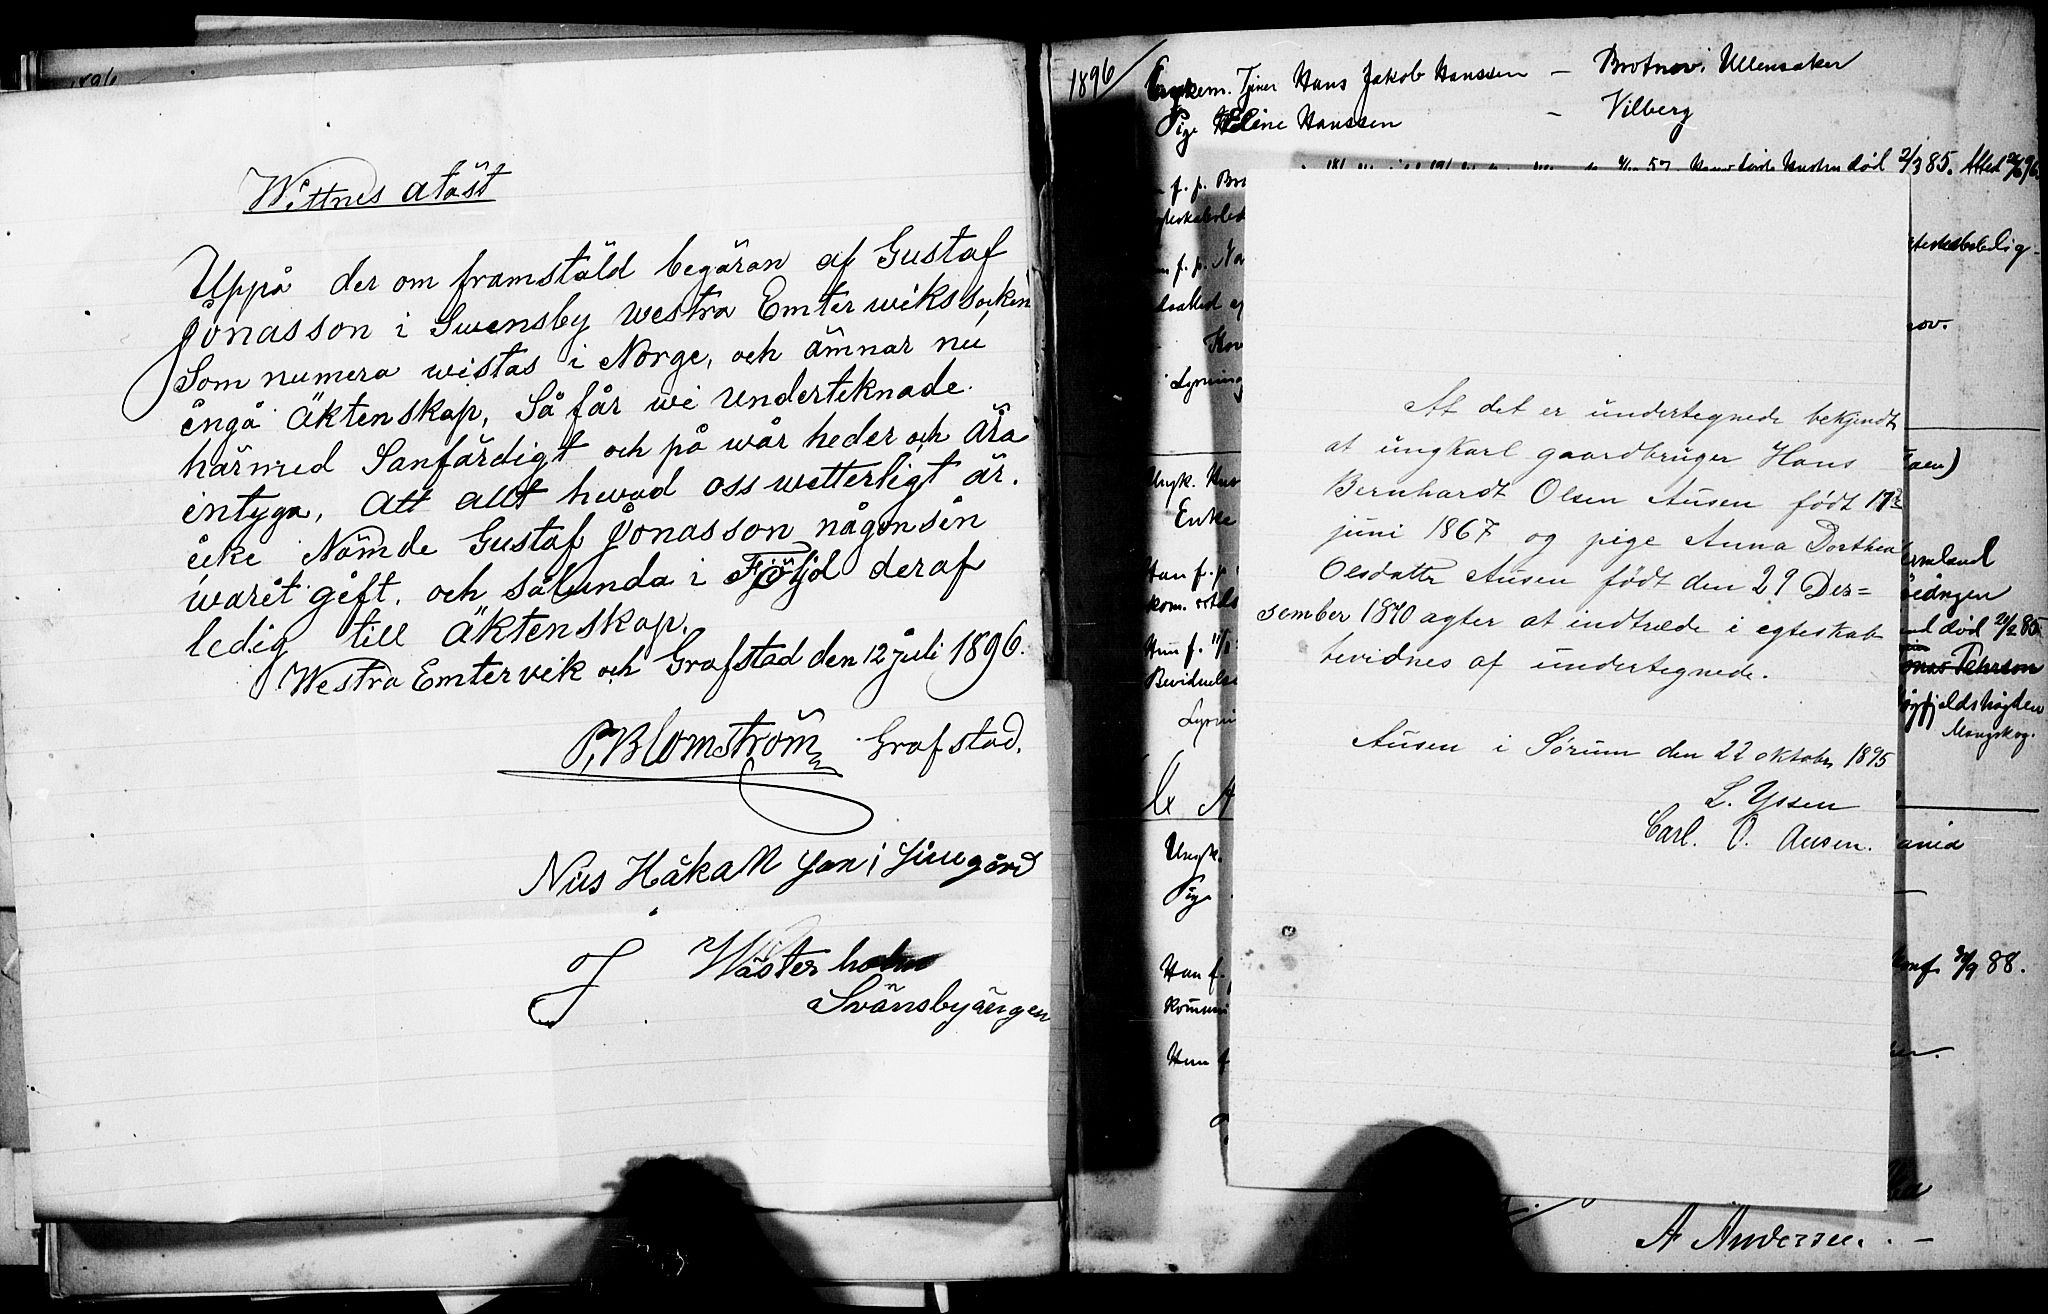 Wittnes atäst
Uppå der om framstäld begäran af Gustaf
Jonasson i Swensby Westra Emterwikssocken
Som numera wistas i Norge, och ämnar nu
ingå Äktenskap, Så får wi Underteknade
härmed Sanfärdigt och på wår heder och ära
intyga, att allt hwad oss wetterligt är.
icke Nämde Gustaf Jonasson någonsin
warit gift. och sålunda i Följd deraf
ledig till äktenskap.
Westra Emtervik och Grafstad den 12 Juli 1896.
P, Blomström Grafstad.
Nils Håkan
J Wästerholm
Svänsbyängen
1896
Ungkem. Tjener Hans Jakob Hanssen — Brotnov i Ullensaker
Pige Heline Hanssen — Vilberg
død 2/3 85. Attest
f. p.
f. p. No
Lysning
At det er undertegnede bekjendt
at ungkarl gaardbruger Hans
Bernhardt Olsen Ausen født 17de
juni 1867 og pige Anna Dorthea
Olsdatter Ausen født den 29 Des=
sember 1870 agter at indtræde i egteskab
bevidnes af undertegnede.
Ausen i Sørum den 22 oktober 1895
L. Yssen
Carl. O. Ausen.
Ungk.
Enke
Han f. p.
kom.
Hun f.
Bevidnelse
død 21/2 85
Mangskog.
Ungk.
Pige
Han f.
Konf. 88.
Hun f
A Andersen. —